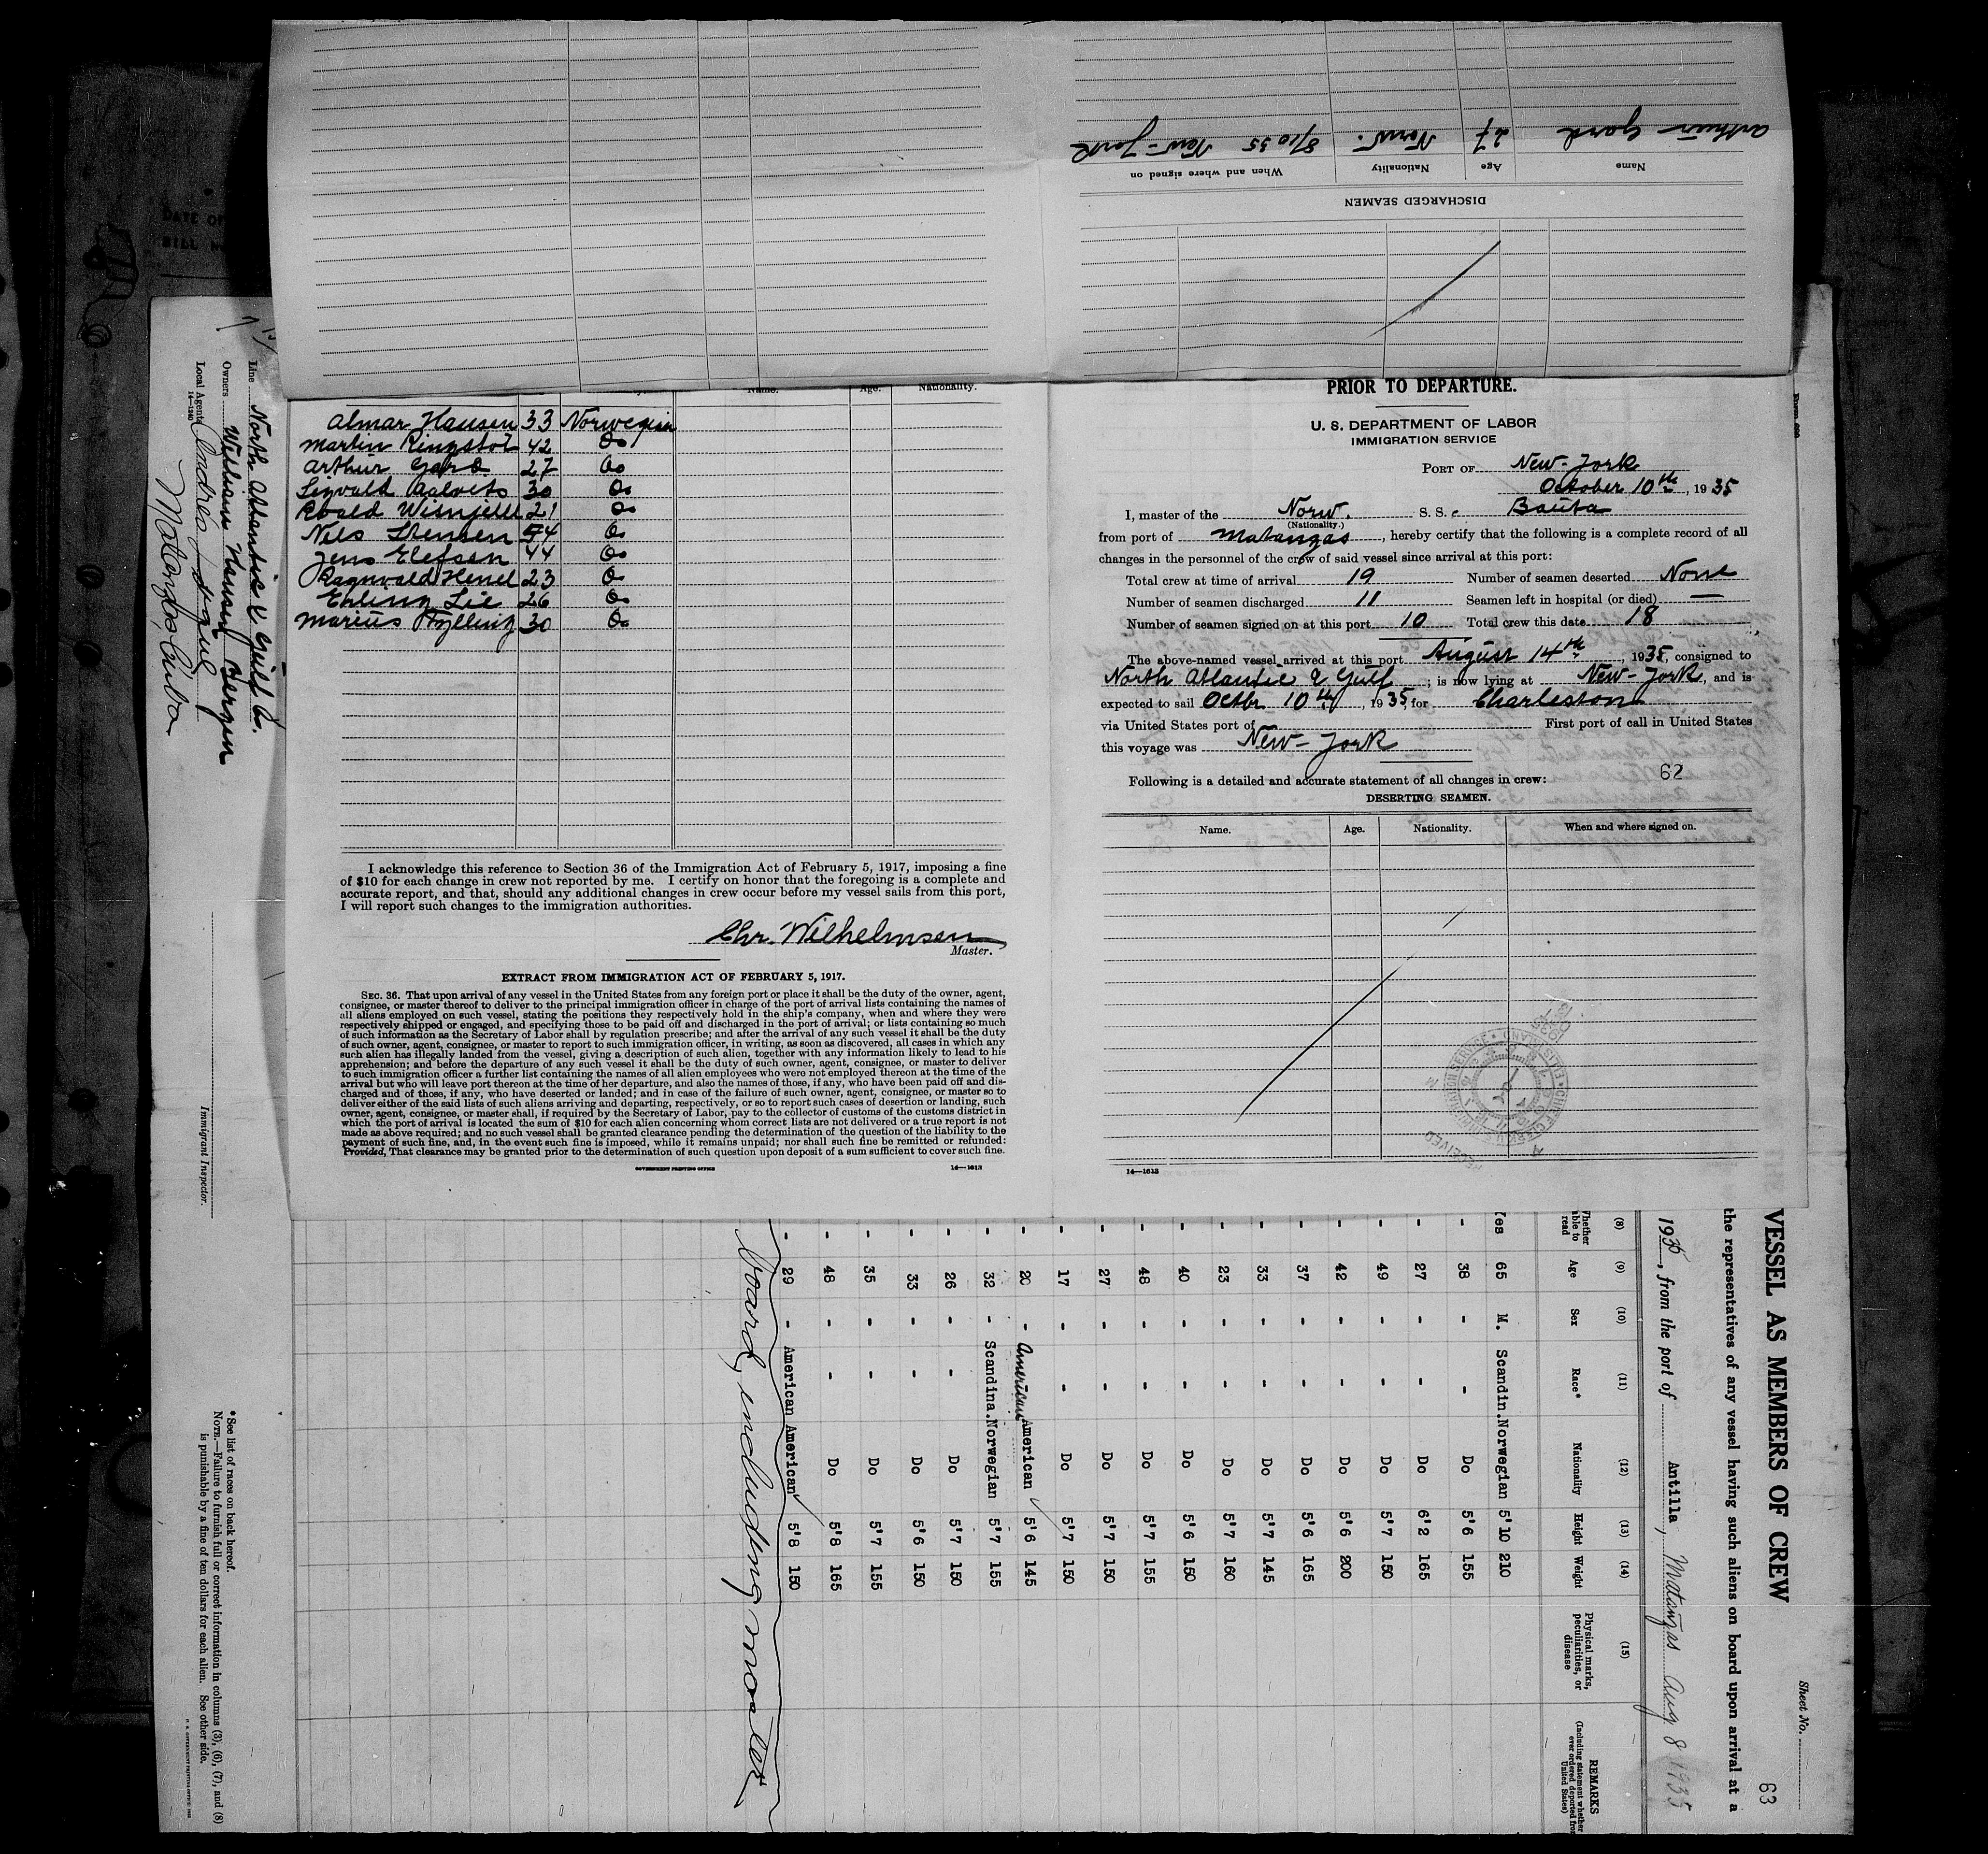 Arthur Gard 27 Norw. 8/10 35 New-York
Name Age Nationality When and where signed on
DISCHARGED SEAMEN
Name. Age. Nationality.
Almar Hansen 33 Norwegian
Martin Ringstol 42 Do
Arthur Gard 27 Do
Sigvald Aalvets 30 Do
Roald Wisnjell 21 Do
Nils Stensen 54 Do
Jens Elefsen 44 Do
Ragnvald Henel 23 Do
Erling Lie 26 Do
Marius Hylling 30 Do
I acknowledge this reference to Section 36 of the Immigration Act of February 5, 1917, imposing a fine
of $10 for each change in crew not reported by me. I certify on honor that the foregoing is a complete and
accurate report, and that, should any additional changes in crew occur before my vessel sails from this port,
I will report such changes to the immigration authorities.
Chr. Wilhelmsen
Master.
EXTRACT FROM IMMIGRATION ACT OF FEBRUARY 5, 1917.
SEC. 36. That upon arrival of any vessel in the United States from any foreign port or place it shall be the duty of the owner, agent,
consignee, or master thereof to deliver to the principal immigration officer in charge of the port of arrival lists containing the names of
all aliens employed on such vessel, stating the positions they respectively hold in the ship's company, when and where they were
respectively shipped or engaged, and specifying those to be paid off and discharged in the port of arrival; or lists containing so much
of such information as the Secretary of Labor shall by regulation prescribe; and after the arrival of any such vessel it shall be the duty
of such owner, agent, consignee, or master to report to such immigration officer, in writing, as soon as discovered, all cases in which any
such alien has illegally landed from the vessel, giving a description of such alien, together with any information likely to lead to his
apprehension; and before the departure of any such vessel it shall be the duty of such owner, agent, consignee, or master to deliver
to such immigration officer a further list containing the names of all alien employees who were not employed thereon at the time of the
arrival but who will leave port thereon at the time of her departure, and also the names of those, if any, who have been paid off and dis-
charged and of those, if any, who have deserted or landed; and in case of the failure of such owner, agent, consignee, or master so to
deliver either of the said lists of such aliens arriving and departing, respectively, or so to report such cases of desertion or landing, such
owner, agent, consignee, or master shall, if required by the Secretary of Labor, pay to the collector of customs of the customs district in
which the port of arrival is located the sum of $10 for each alien concerning whom correct lists are not delivered or a true report is not
made as above required; and no such vessel shall be granted clearance pending the determination of the question of the liability to the
payment of such fine, and, in the event such fine is imposed, while it remains unpaid; nor shall such fine be remitted or refunded:
Provided, That clearance may be granted prior to the determination of such question upon deposit of a sum sufficient to cover such fine.
GOVERNMENT PRINTING OFFICE 14—1613
PRIOR TO DEPARTURE.
U. S. DEPARTMENT OF LABOR
IMMIGRATION SERVICE
PORT OF New-York
October 10th, 1935
I, master of the Norw. S. S. Bauta
(Nationality.)
from port of Matanzas, hereby certify that the following is a complete record of all
changes in the personnel of the crew of said vessel since arrival at this port:
Total crew at time of arrival 19 Number of seamen deserted None
Number of seamen discharged 11 Seamen left in hospital (or died) —
Number of seamen signed on at this port 10 Total crew this date 18
The above-named vessel arrived at this port August 14th, 1935, consigned to
North Atlantic & Gulf; is now lying at New-York, and is
expected to sail Octbr 10th, 1935, for Charleston
via United States port of First port of call in United States
this voyage was New-York
Following is a detailed and accurate statement of all changes in crew: 62
DESERTING SEAMEN.
Name. Age. Nationality. When and where signed on.
14—1613
Line North Atlantic & Gulf C.
Owners William Hansen Bergen
Local Agents
14-1240
Matanzas, Cuba
Immigrant Inspector.
*See list of races on back hereof.
NOTE.—Failure to furnish full or correct information in columns (3), (6), (7), and (8)
is punishable by a fine of ten dollars for each alien. See other side.
Sheet No. 63
VESSEL AS MEMBERS OF CREW
the representatives of any vessel having such aliens on board upon arrival at a
1935, from the port of Antilla, Matanzas Aug 8 1935
(8) (9) (10) (11) (12) (13) (14) (15)
Whether able to read Age Sex Race* Nationality Height Weight Physical marks, peculiarities, or disease REMARKS (Including statement whether ever ordered deported from United States)
Yes 65 M. Scandin. Norwegian 5'10 210
- 38 - - Do 5'6 155
- 27 - - Do 6'2 165
- 49 - - Do 5'7 150
- 42 - - Do 5'6 200
- 37 - - Do 5'6 165
- 33 - - Do 5'7 145
- 23 - - Do 5'7 160
- 40 - - Do 5'6 150
- 48 - - Do 5'7 155
- 27 - - Do 5'7 150
- 17 - - Do 5'7 150
- 20 - American American 5'6 145
- 32 - Scandina. Norwegian 5'7 155
- 26 - - Do 5'7 150
- 33 - - Do 5'6 150
- 35 - - Do 5'7 155
- 48 - - Do 5'8 165
- 29 - American American 5'8 150
board, including master